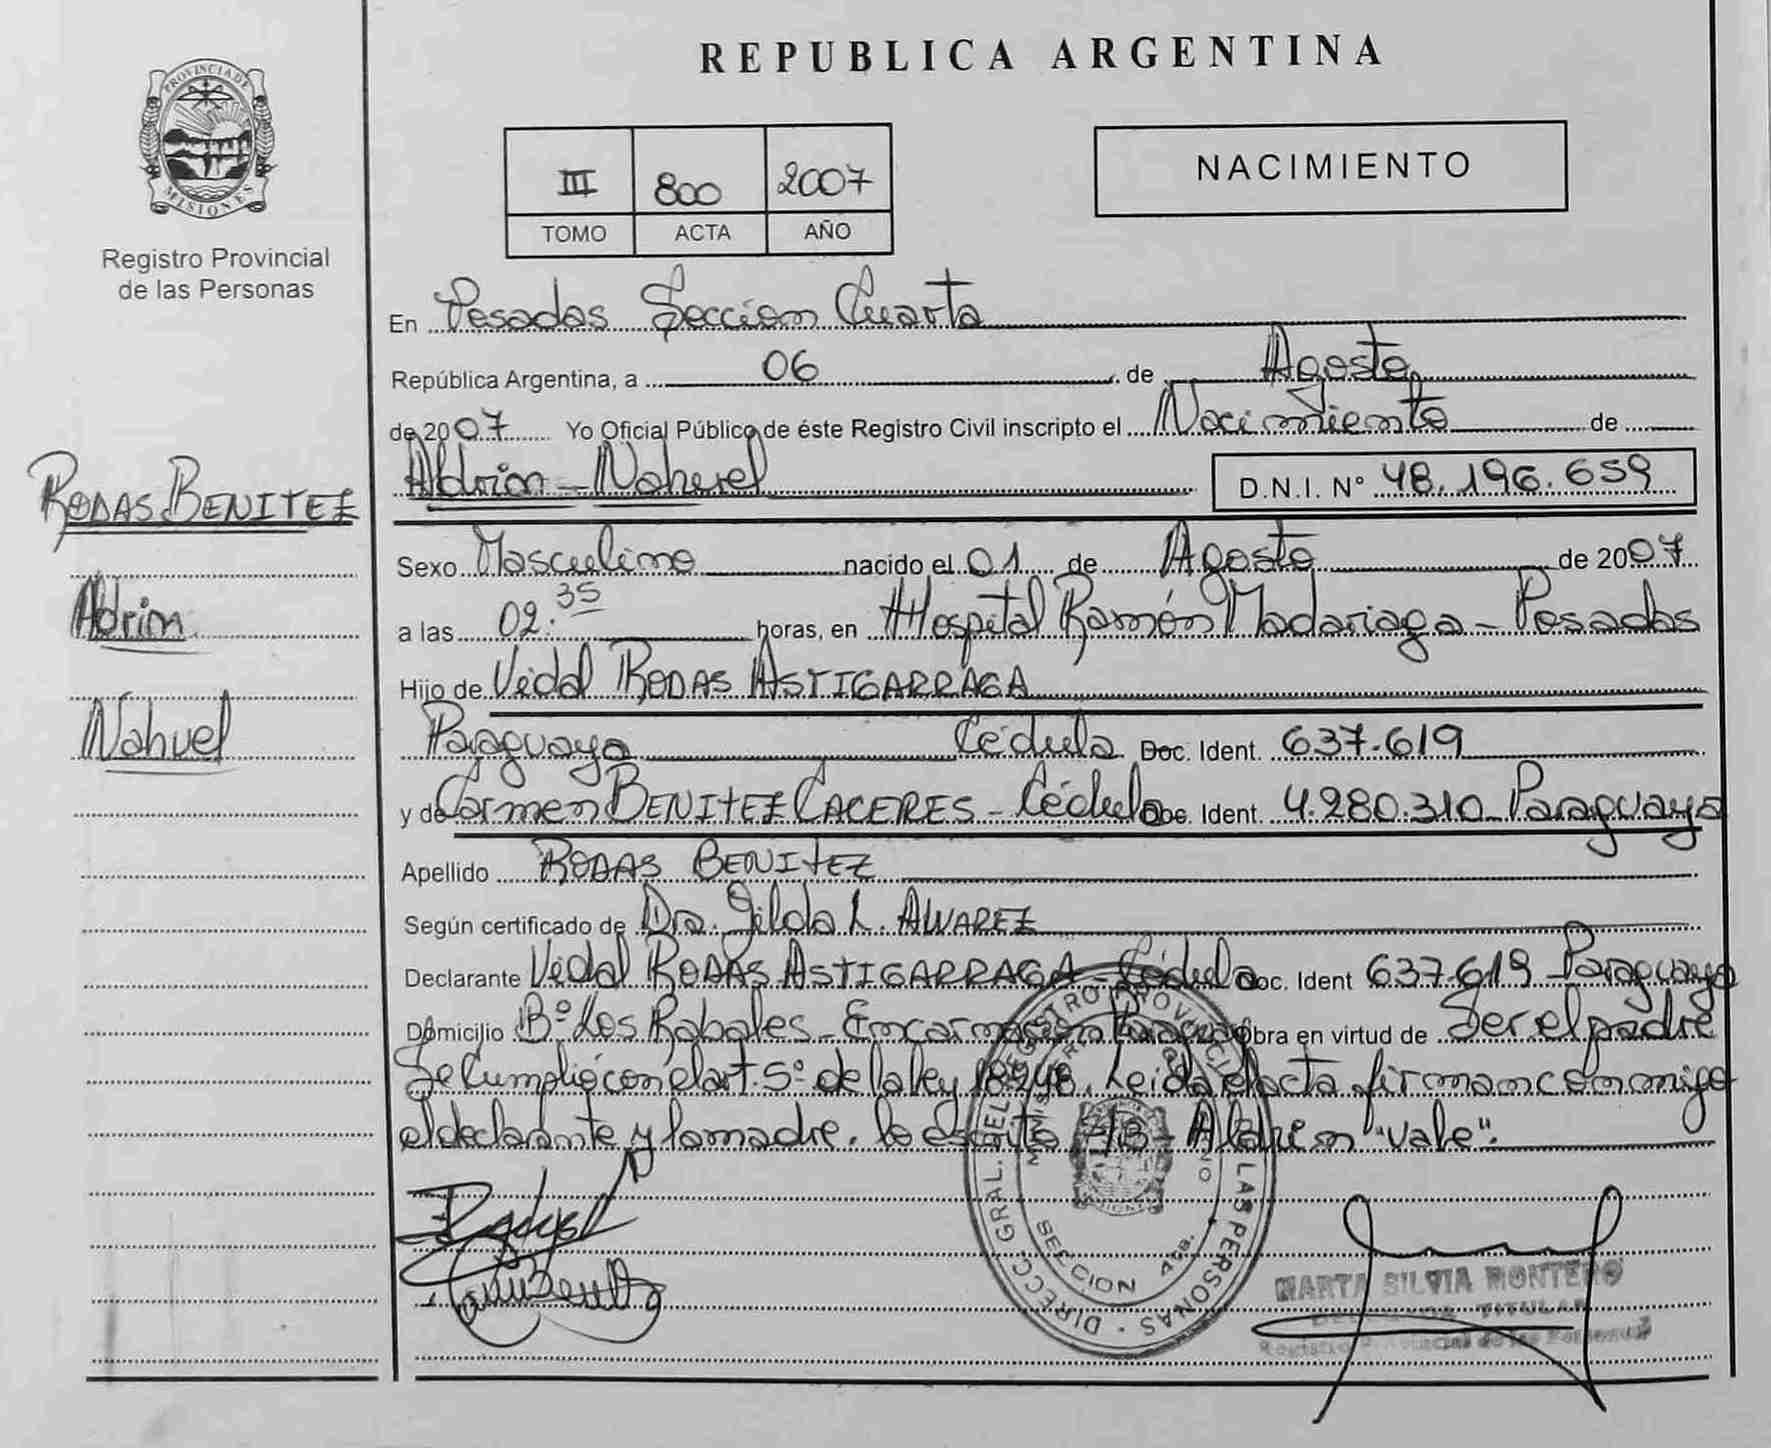 REPUBLICA ARGENTINA
PROVINCIA DE
MISIONES
Registro Provincial
de las Personas
III 800 2007
TOMO ACTA AÑO
NACIMIENTO
En Posadas Seccion Cuarta
República Argentina, a 06 de Agosto
de 2007 Yo Oficial Público de éste Registro Civil inscripto el Nacimiento de
Adrian - Nahuel D.N.I. N° 48.196.659
RODAS BENITEZ
Adrian
Nahuel
Sexo Masculino nacido el 01 de Agosto de 2007
a las 02:35 horas, en Hospital Ramón Madariaga - Posadas
Hijo de Vidal RODAS ASTIGARRAGA
Paraguaya Cédula Doc. Ident. 637.619
y de Carmen BENITEZ CACERES - Cédula Doc. Ident. 4.280.310 Paraguaya
Apellido RODAS BENITEZ
Según certificado de Dra. Gilda L. ALVAREZ
Declarante Vidal RODAS ASTIGARRAGA - Cédula Doc. Ident 637.619 Paraguaya
Domicilio B° Los Rabales - Encarnacion Obra en virtud de Ser el padre
Se Cumplió con el art. 5° de la ley 18248. Leida el acta firman conmigo
el declarante y la madre. lo escrito "vale".
DIRECC. GRAL. DEL REGISTRO PROVINCIAL LAS PERSONAS
SECCION 4ta.
MARTA SILVIA MONTERO
DELEGADA TITULAR
Registro Provincial de las Personas